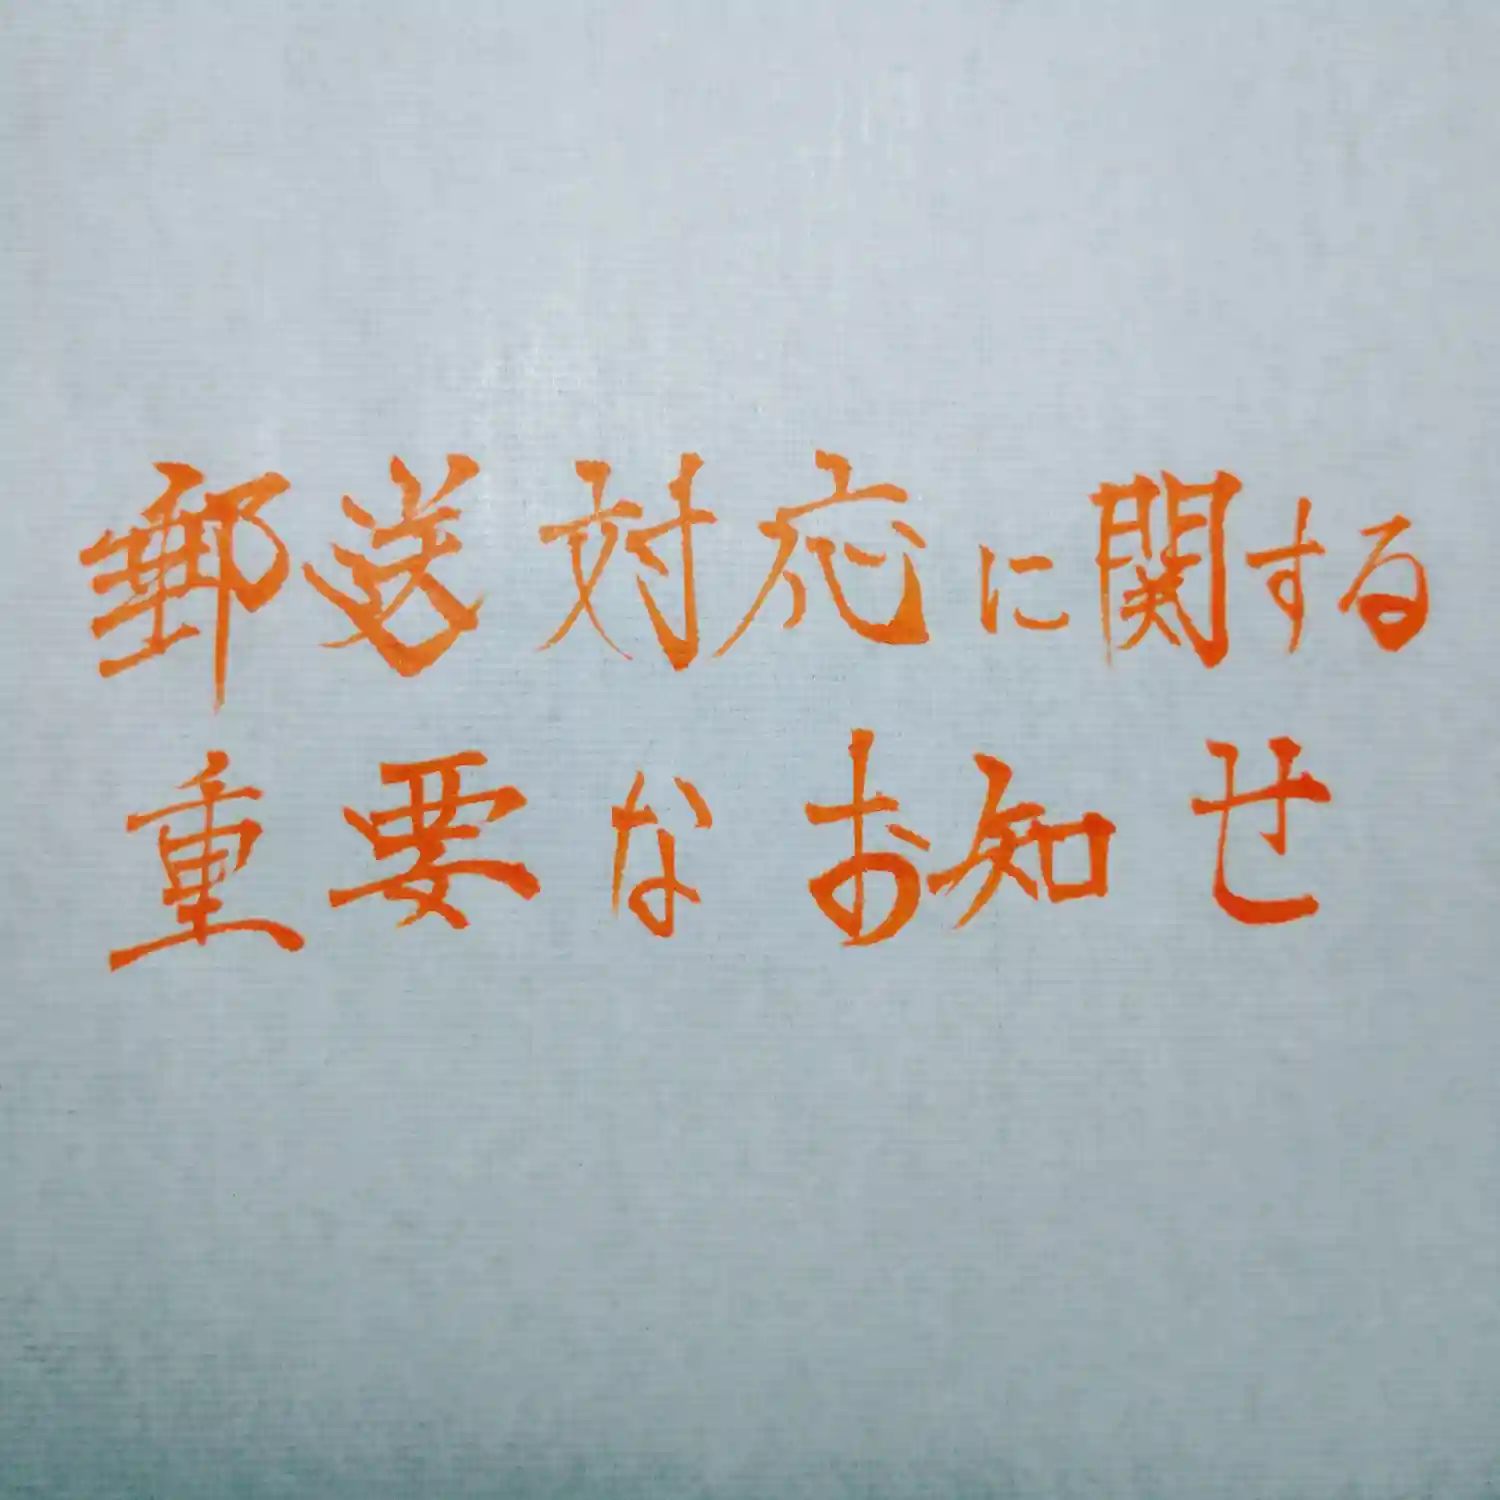 郵送対応に関する
重要なお知せ